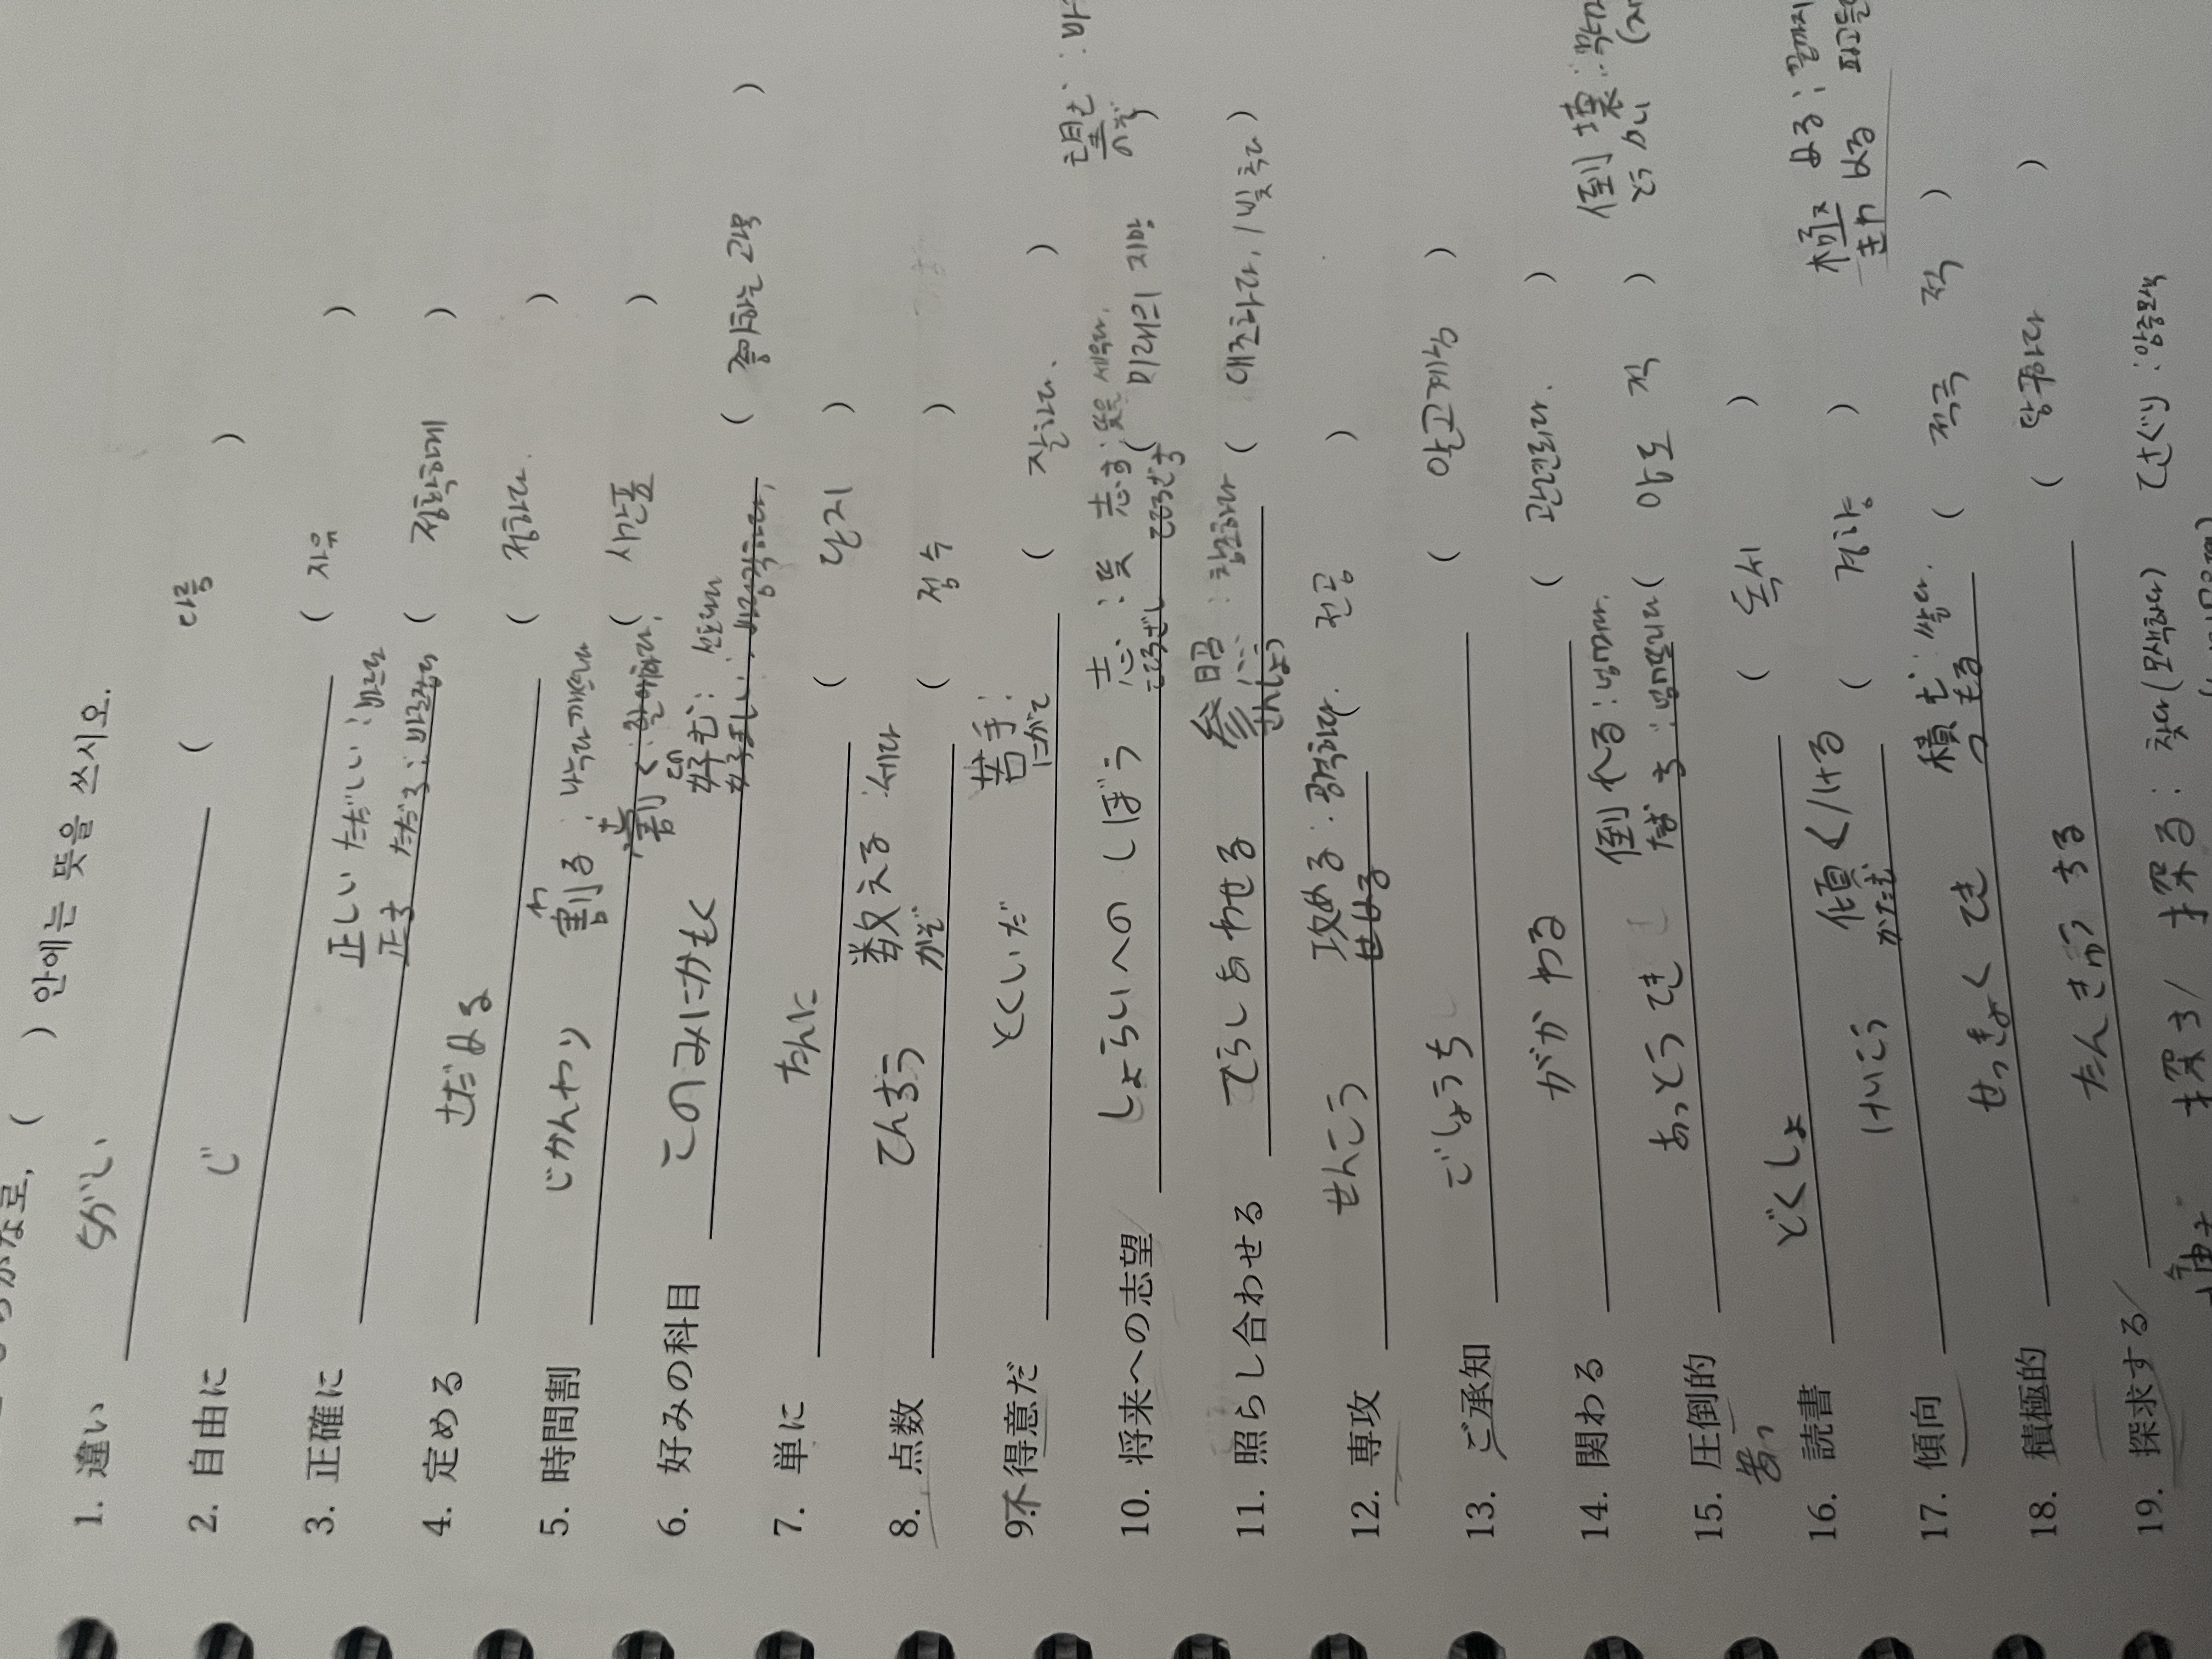 ひらがなで, (　　) 안에는 뜻을 쓰시오.
1. 違い ちがい ( 다름 )
2. 自由に じ ( 자유 )
正しい ただしい : 바르다
3. 正確に ( 정확하게 )
正す ただす : 바로잡다
4. 定める さだめる ( 정하다. )
割る わ : 나누다 깨뜨리다
5. 時間割 じかんわり ( 시간표 )
割く さ : 할애하다.
好む この : 선호하다
6. 好みの科目 このみにかもく ( 좋아하는 과목 )
好ましい : 바람직하다.
7. 単に たんに ( 단지 )
数える : 세다
かぞ
8. 点数 てんすう ( 점수 )
苦手 :
にがて
9. 不得意だ とくいだ ( 잘하다. )
志 : 뜻 志す : 뜻을 세우다.
こころざし こころざす
望む :
のぞ
10. 将来への志望 しょらいへの しぼう ( 미래의 지망 )
参照 : 참조하다
さんしょう
11. 照らし合わせる てらしあわせる ( 대조하다, / 빛 추다 )
攻める : 공격하다.
せめる
12. 専攻 せんこう ( 전공 )
13. ご承知 ごしょうち ( 알고계심 )
14. 関わる がかわる ( 관련되다. )
倒れる : 넘어지다.
倒壊 :
とうかい
15. 圧倒的 あっとうてき ( 압도적 )
あっ
16. 読書 どくしょ ( 독서 )
傾く/ける
かたむ
極める : 끝까지
きわめる 파고들
17. 傾向 けいこう ( 경향 )
積む : 쌓다.
つもる
18. 積極的 せっきょくてき ( 적극적 )
19. 探求する たんきゅうする ( 탐구하다 )
探す / 探る : 찾다 (모색하다) てさぐり : 암중모색